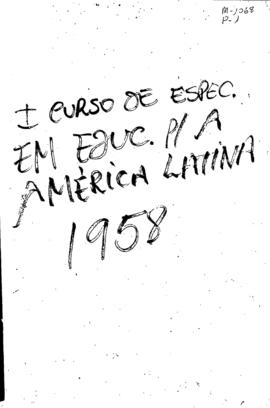 M-1068
P-1
I CURSO DE ESPEC.
EM EDUC. P/ A
AMÉRICA LATINA
1958